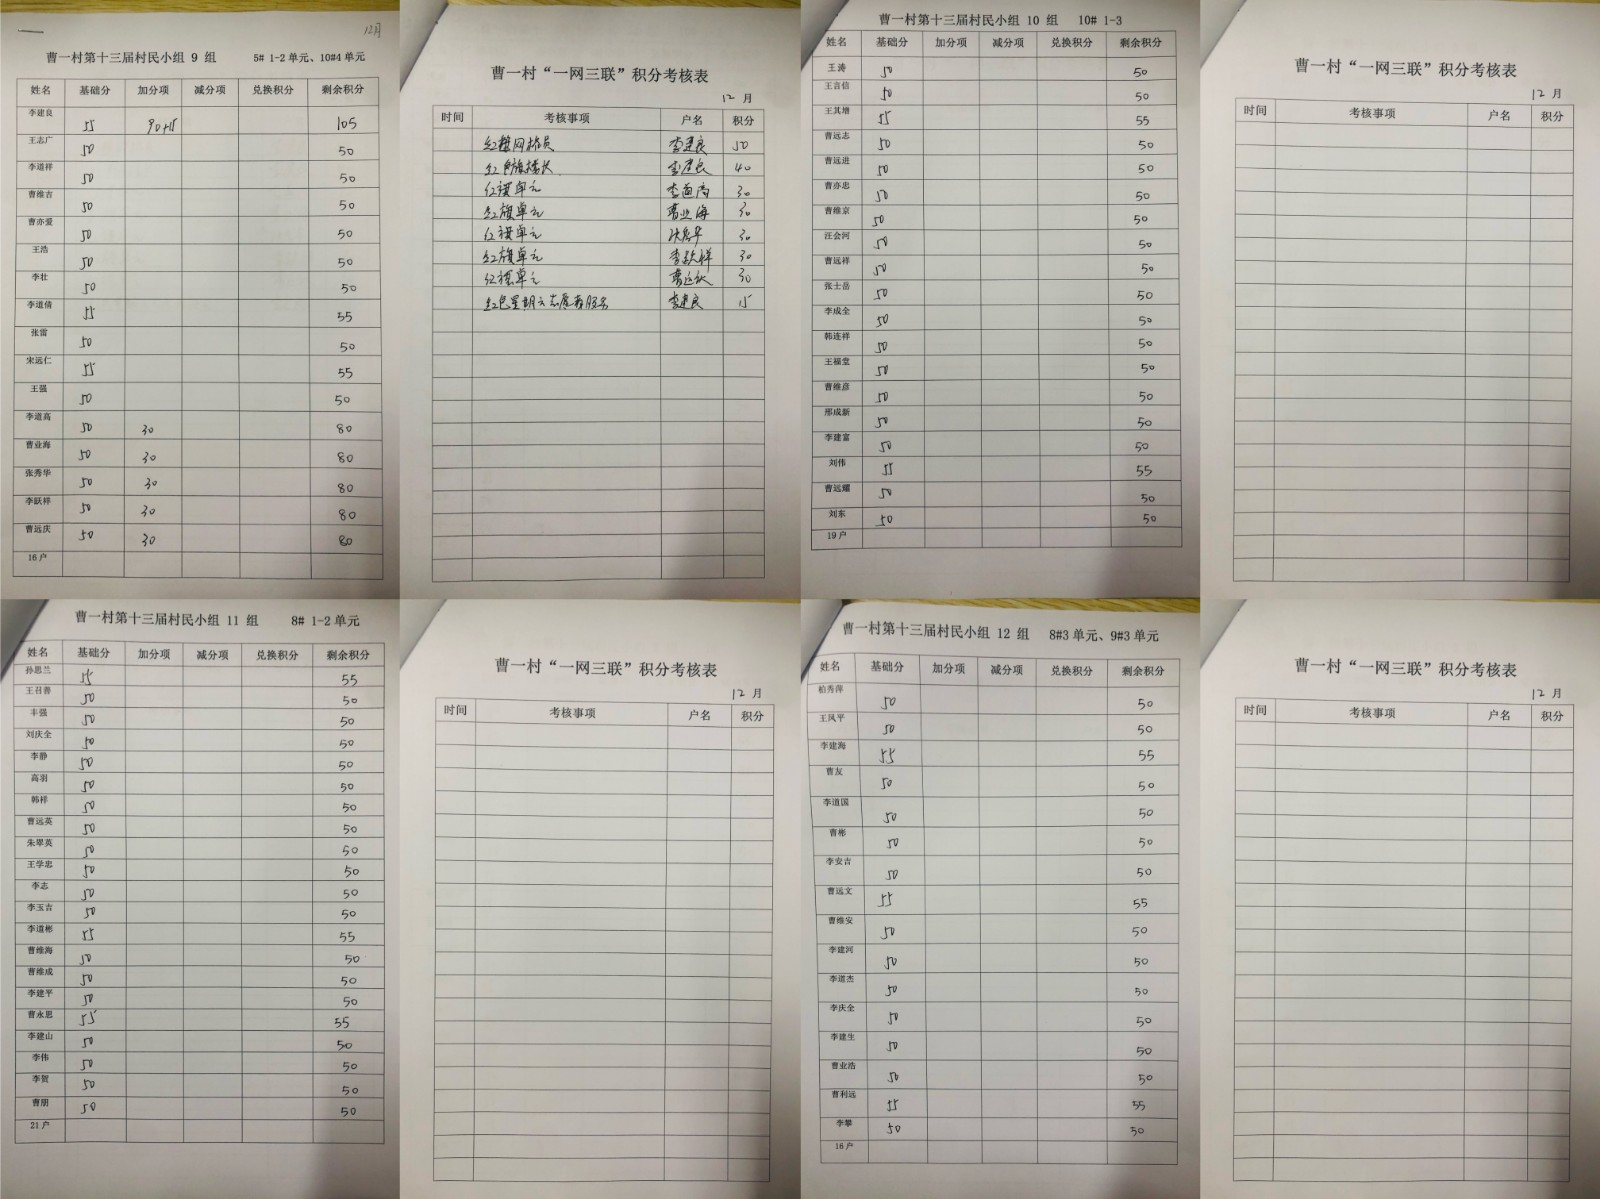 12月
曹一村第十三届村民小组 9 组 5# 1-2 单元、10#4 单元
姓名 基础分 加分项 减分项 兑换积分 剩余积分
李建良 55 90+15 105
王志广 50 50
李道祥 50 50
曹维吉 50 50
曹亦爱 50 50
王浩 50 50
李壮 50 50
李道倩 55 55
张雷 50 50
宋远仁 55 55
王强 50 50
李道高 50 30 80
曹业海 50 30 80
张秀华 50 30 80
李跃祥 50 30 80
曹远庆 50 30 80
16 户
曹一村“一网三联”积分考核表
12 月
时间 考核事项 户名 积分
红旗网格员 李建良 50
红色旗楼长 李建良 40
红旗单元 李道高 30
红旗单元 曹业海 30
红旗单元 张秀华 30
红旗单元 李跃祥 30
红旗单元 曹远庆 30
红色星期六志愿者服务 李建良 15
曹一村第十三届村民小组 10 组 10# 1-3
姓名 基础分 加分项 减分项 兑换积分 剩余积分
王涛 50 50
王言信 50 50
王其增 55 55
曹远志 50 50
曹远进 50 50
曹亦忠 50 50
曹维京 50 50
汪会河 50 50
曹远祥 50 50
张士岳 50 50
李成全 50 50
韩连祥 50 50
王福堂 50 50
曹维彦 50 50
邢成新 50 50
李建富 50 50
刘伟 55 55
曹远耀 50 50
刘东 50 50
19 户
曹一村“一网三联”积分考核表
12 月
时间 考核事项 户名 积分
曹一村第十三届村民小组 11 组 8# 1-2 单元
姓名 基础分 加分项 减分项 兑换积分 剩余积分
孙思兰 55 55
王召善 50 50
丰强 50 50
刘庆全 50 50
李静 50 50
高羽 50 50
韩祥 50 50
曹远英 50 50
朱翠英 50 50
王学忠 50 50
李志 50 50
李玉吉 50 50
李道彬 55 55
曹维海 50 50
曹维成 50 50
李建平 50 50
曹永思 55 55
李建山 50 50
李伟 50 50
李贺 50 50
曹朋 50 50
21 户
曹一村“一网三联”积分考核表
12 月
时间 考核事项 户名 积分
曹一村第十三届村民小组 12 组 8#3 单元、9#3 单元
姓名 基础分 加分项 减分项 兑换积分 剩余积分
柏秀萍 50 50
王凤平 50 50
李建海 55 55
曹友 50 50
李道国 50 50
曹彬 50 50
李安吉 50 50
曹远文 55 55
曹维安 50 50
李建河 50 50
李道杰 50 50
李庆全 50 50
李建生 50 50
曹业浩 50 50
曹利远 55 55
李攀 50 50
16 户
曹一村“一网三联”积分考核表
12 月
时间 考核事项 户名 积分